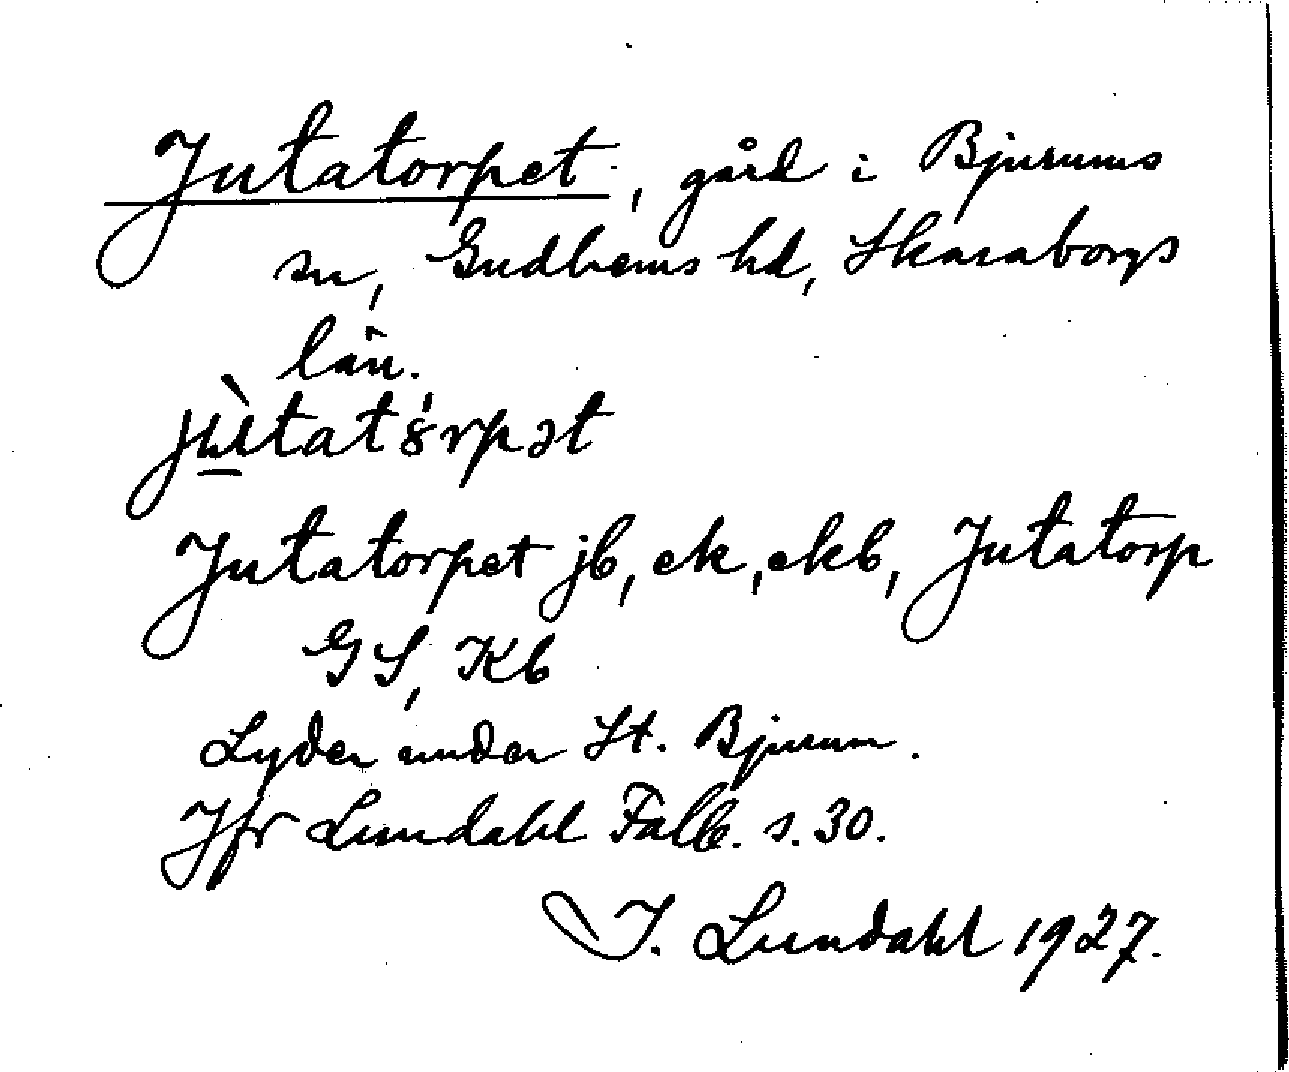 Jutatorpet, gård i Bjurums
sn, Gudhems hd, Skaraborgs
län.
jùtatȣ́rpət
Jutatorpet jb, ek, ekb, Jutatorp
GS, Kb
Lyder under St. Bjurum.
Jfr Lundahl Falb. s. 30.
I. Lundahl 1927.